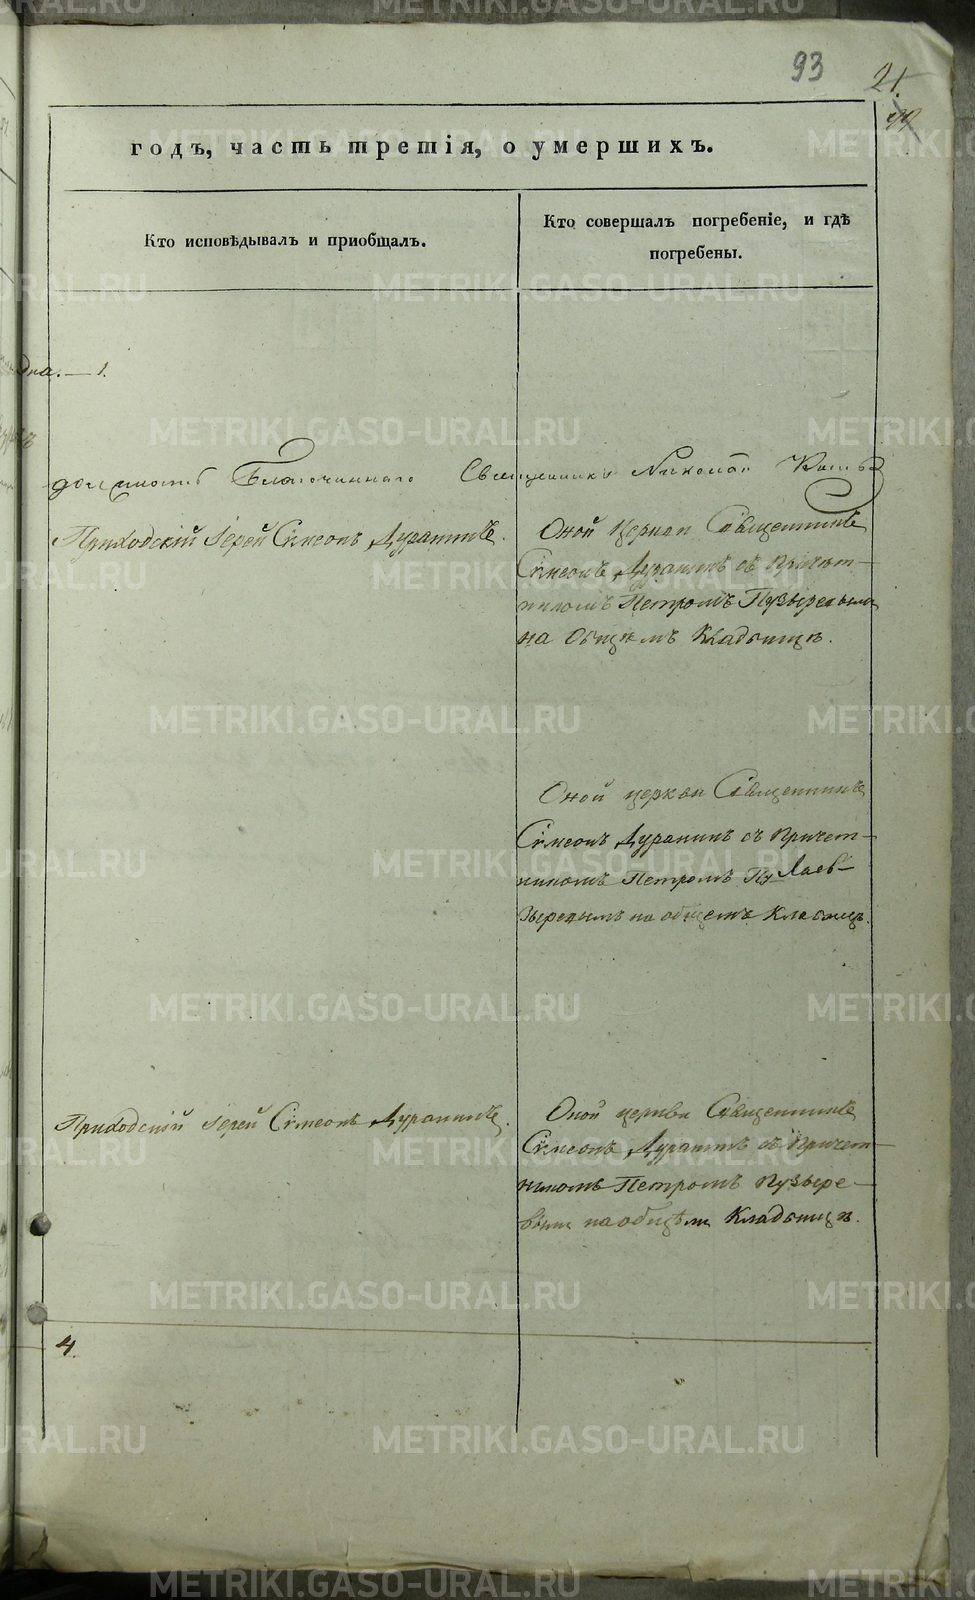 93
21.
годъ, часть третія, о умершихъ.
Кто исповѣдывалъ и приобщалъ.
Кто совершалъ погребеніе, и гдѣ
погребены.
1.
Благочиннаго Священникъ Николай
Приходскій Іерей Симеонъ Дуранинъ.
Оной Церкви Священникъ
Симеонъ Дуранинъ съ Причет-
никомъ Петромъ Пузыревымъ
на Общемъ Кладбищѣ.
Оной церкви Священникъ
Симеонъ Дуранинъ съ Причет-
никомъ Петромъ Пу-
зыревымъ на общемъ Кладбищѣ.
Приходскій Іерей Симеонъ Дуранинъ.
Оной церкви Священникъ
Симеонъ Дуранинъ съ Причет-
никомъ Петромъ Пузыре-
вымъ на общемъ Кладбищѣ.
4.
METRIKI.GASO-URAL.RU